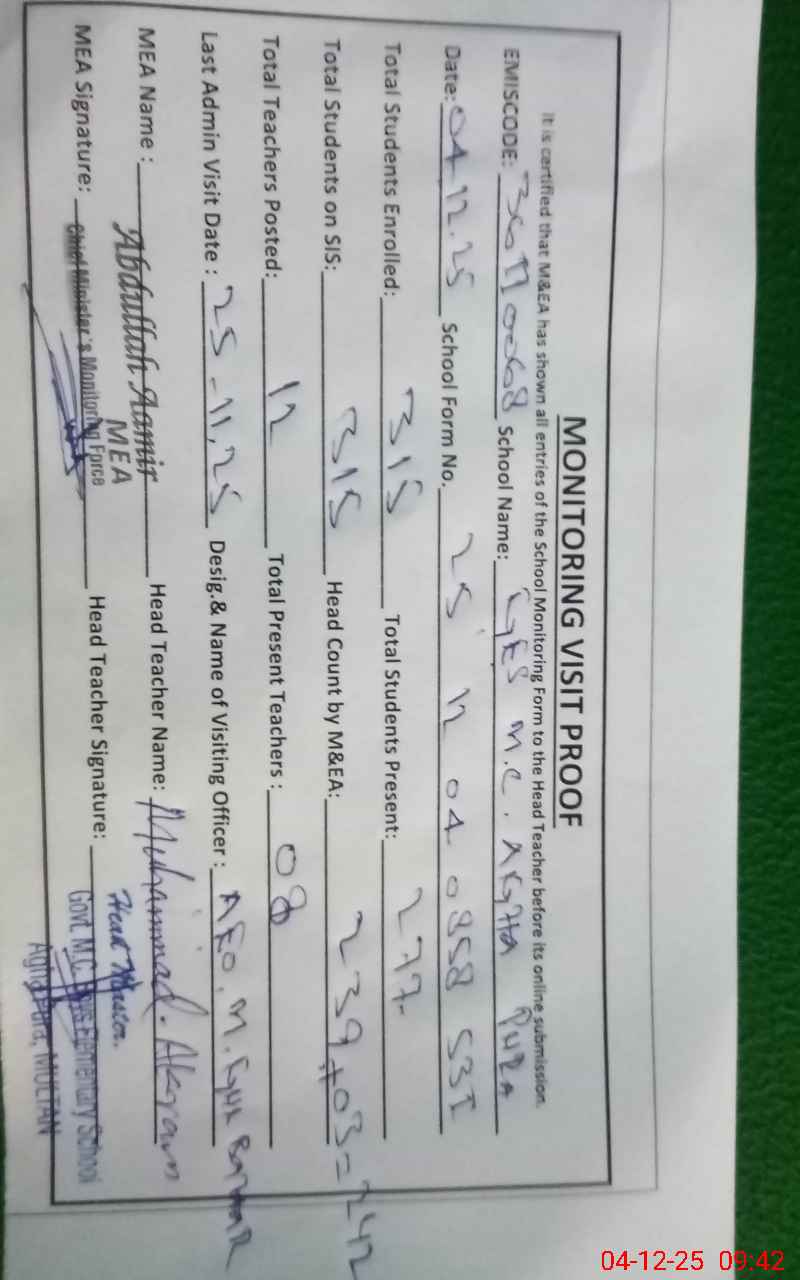 MONITORING VISIT PROOF
It is certified that M&EA has shown all entries of the School Monitoring Form to the Head Teacher before its online submission.
EMISCODE: 36110068 School Name: GES M.C. AGHA PURA
Date: 04.12.25 School Form No. 25 12 04 0858 53I
Total Students Enrolled: 315 Total Students Present: 277
Total Students on SIS: 315 Head Count by M&EA: 239+03=242
Total Teachers Posted: 12 Total Present Teachers: 08
Last Admin Visit Date: 25-11.25 Desig.& Name of Visiting Officer: AEO. M.
MEA Name: Abdullah Aamir Head Teacher Name: Muhammad. Akram
MEA
MEA Signature: Chief Minister's Monitoring Force Head Teacher Signature: Head Master.
Govt. M.C. Boys Elementary School
Agha Pura, MULTAN
04-12-25 09:42